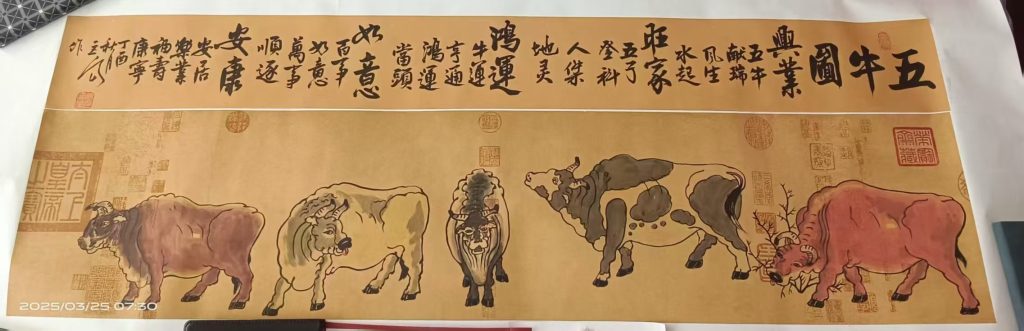 五牛圖
興業
五牛
獻瑞
风生
水起
旺家
五子
登科
人傑
地灵
鴻運
牛運
亨通
鴻運
當頭
如意
百事
如意
萬事
順遂
安康
安居
樂業
福壽
康寧
丁酉
秋月
作
2025/03/25 07:30